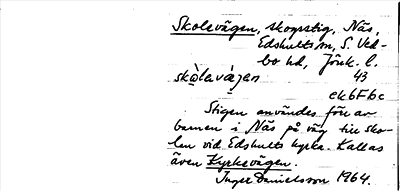 Skolavägen, skogsstig, Näs,
Edshults sn, S. Ved-
bo hd, Jönk. l.
skòlavä̀jen 43
ek6Fbc
Stigen användes förr av
barnen i Näs på väg till sko-
len vid Edshults kyrka. Kallas
även Kyrkvägen.
Inger Danielsson 1964.